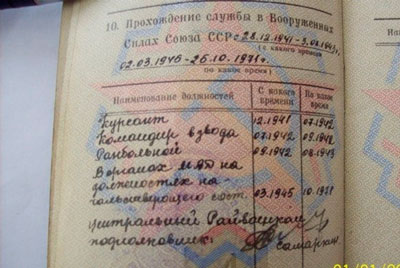 10. Прохождение службы в Вооруженных
Силах Союза ССР с 28.12.1941-3.08.1943г,
(с какого времени
02.03.1945-25.10.1971г.
по какое время)
Наименование должностей
С какого времени
По какое время
Курсант 12.1941 07.1942
Командир взвода 07.1942 09.1942
Ранбольной 09.1942 08.1943
В органах МВД на
должностях на-
чальствующего сост. 03.1945 10.1971
Центральный Райвоенком
подполковник: